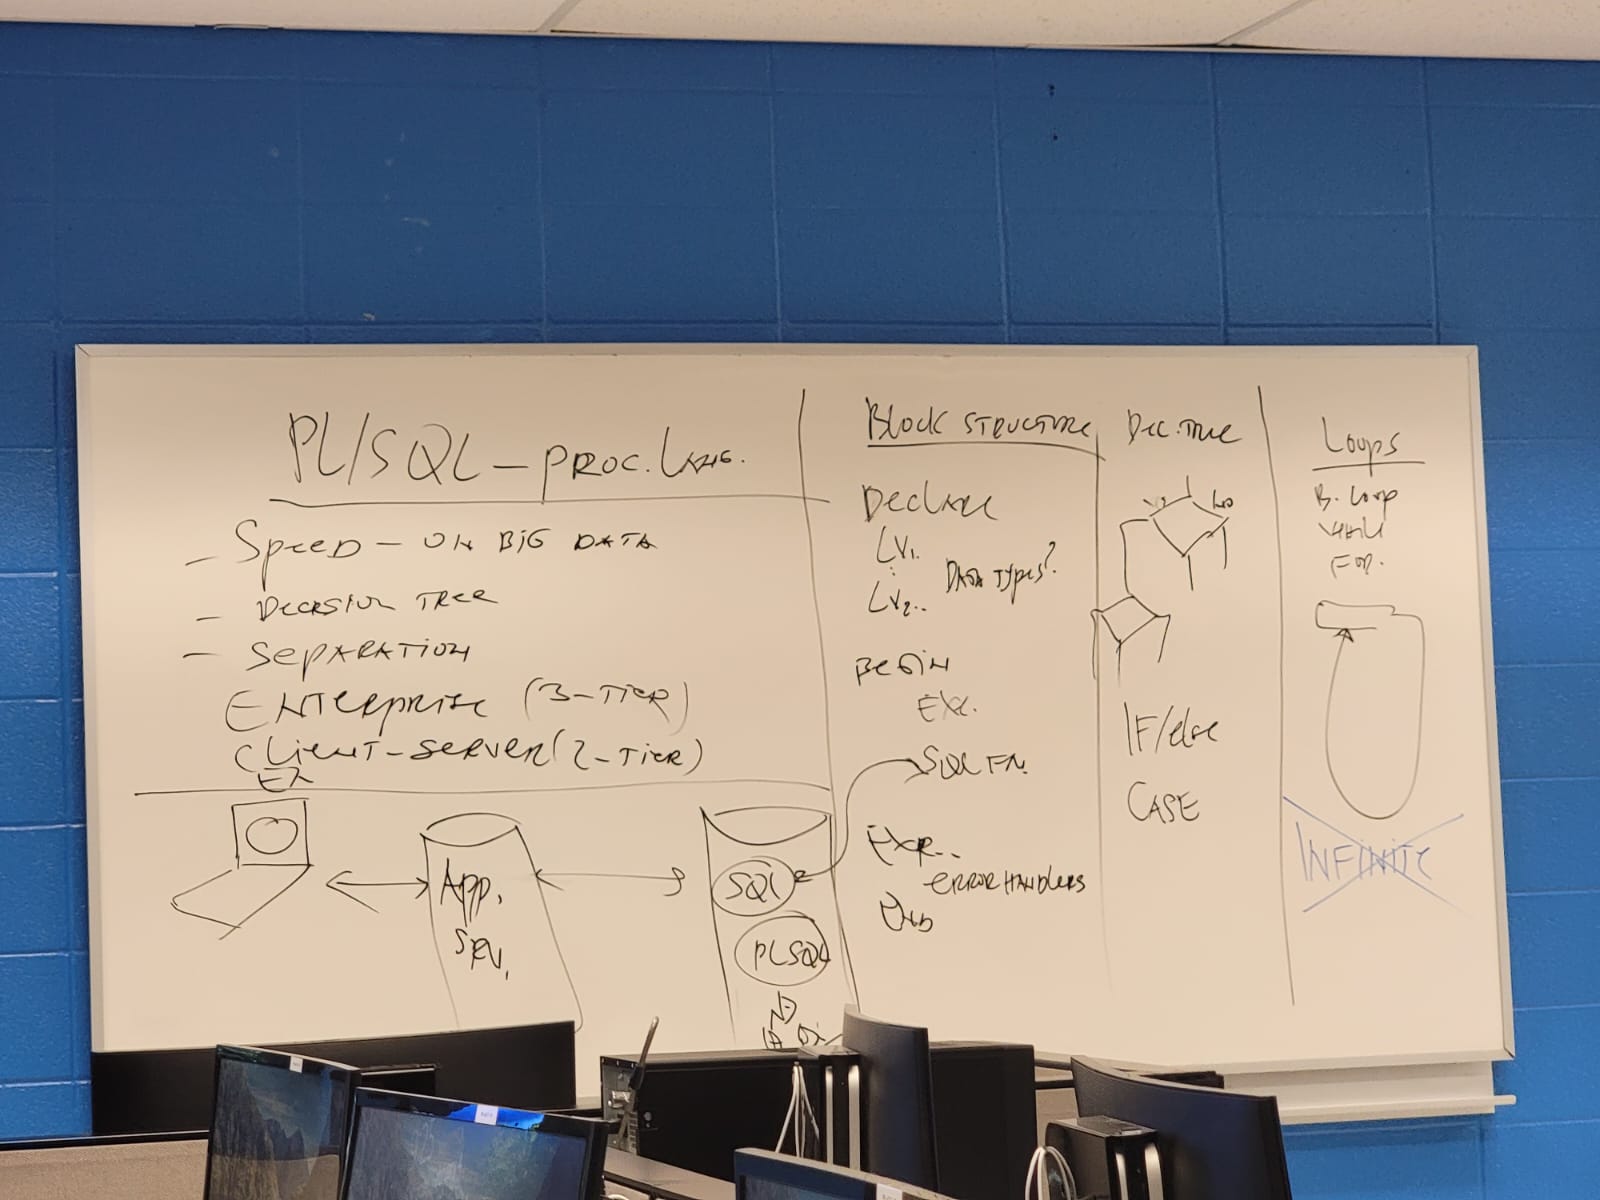 PL/SQL - PROC. LANG.
- SPEED - ON BIG DATA
- DECISION TREE
- SEPARATION
ENTERPRISE (3-TIER)
CLIENT-SERVER (2-TIER)
EX
App.
SRV.
SQL
PLSQL
BLOCK STRUCTURE
DECLARE
LV1.
LV2..
DATA TYPES?
BEGIN
EXE.
SQL FN.
EXP..
ERROR HANDLERS
END
DEC. TREE
NO
IF/else
CASE
Loops
B. Loop
WHILE
FOR.
INFINITE